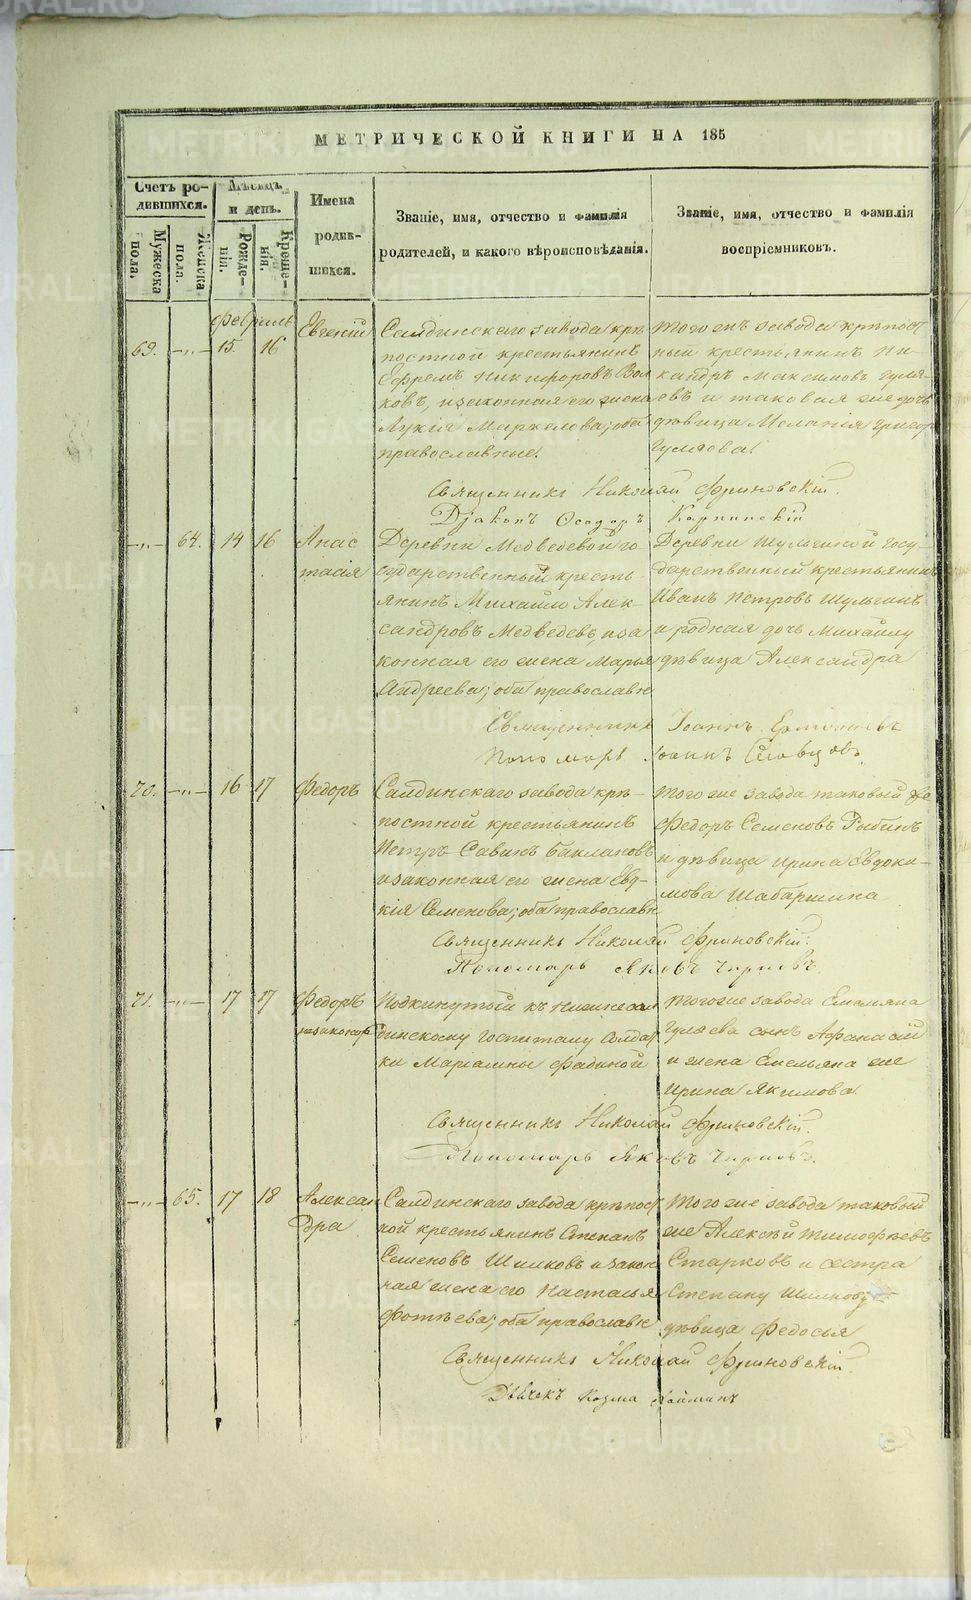 МЕТРИЧЕСКОЙ КНИГИ НА 185
Счетъ ро-
дившихся.
Мѣсяцъ
и день.
Имена
родив-
шихся.
Званіе, имя, отчество и фамилія
родителей, и какого вѣроисповѣданія.
Званіе, имя, отчество и фамилія
воспріемниковъ.
Мужеска
пола.
Женска
пола.
Рожде-
нія.
Креще-
нія.
Февраль
69. —„— 15. 16
Евгеній
Салдинскаго завода крѣ
постной крестьянинъ
Ефремъ Никифоровъ Вол
ковъ, изаконная его жена
Лукія Маркелова; оба
православные.
Того жъ завода крѣпост
ный крестьянинъ Ни-
кандръ Максимовъ Гуля-
евъ и таковая же дочь
дѣвица Меланія Григор
Гуляева
Священникъ Николай Фриновскій.
Діаконъ Ѳеодоръ Карпинскій
—„— 64. 14 16
Анас
тасія
Деревни Медведевой го-
сударственный кресть-
янинъ Михаилъ Алек-
сандровъ Медведевъ, иза
конная его жена Марья
Андреева; оба православн
Деревни Шульгиной госу-
дарственный крестьянинъ
Иванъ Петровъ Шульгинъ
и родная дочь Михайлу
дѣвица Александра
Священникъ Іоаннъ
Пономарь Іоаннъ Словцовъ.
70. —„— 16 17
Федоръ
Салдинскаго завода крѣ-
постной крестьянинъ
Петръ Савинъ Баклановъ
изаконная его жена Евдо
кія Семенова; оба православн
Того же завода таковый же
Федоръ Семеновъ Рыбинъ
и дѣвица Ирина Евдоки-
мова Шабаршина
Священникъ Николай Фриновскій.
Пономарь Яковъ Чирковъ.
71. —„— 17 17
Федоръ
незаконор
Подкинутой къ Нижнесал
динскому госпиталу Солдат
ки Маріамны Фадиной
Тогоже завода Емельяна
Гуляева сынъ Афанасій
и жена Емельяна же
Ирина Якимова.
Священникъ Николай Фриновскій.
Пономарь Яковъ Чирковъ.
—„— 65. 17 18
Алексан
дра
Салдинскаго завода крѣпост
ной крестьянинъ Степанъ
Семеновъ Шилковъ изакон
ная жена его Насталья
Фотѣева; оба православн
Того же завода таковый
же Алексѣй Тимофѣевъ
Старковъ и сестра
Степану Шилкову
дѣвица Федосья
Священникъ Николай Фриновскій.
Дьячекъ Козма
METRIKI.GASO-URAL.RU